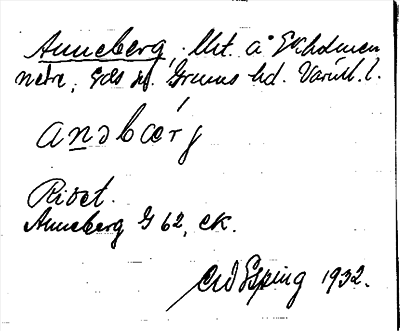 Anneberg, lht. å Ekholmen
nedre, Eds sn. Grums hd. Värml. l.
anəbærg
Rivet.
Anneberg G 62, ek.
Esping 1932.